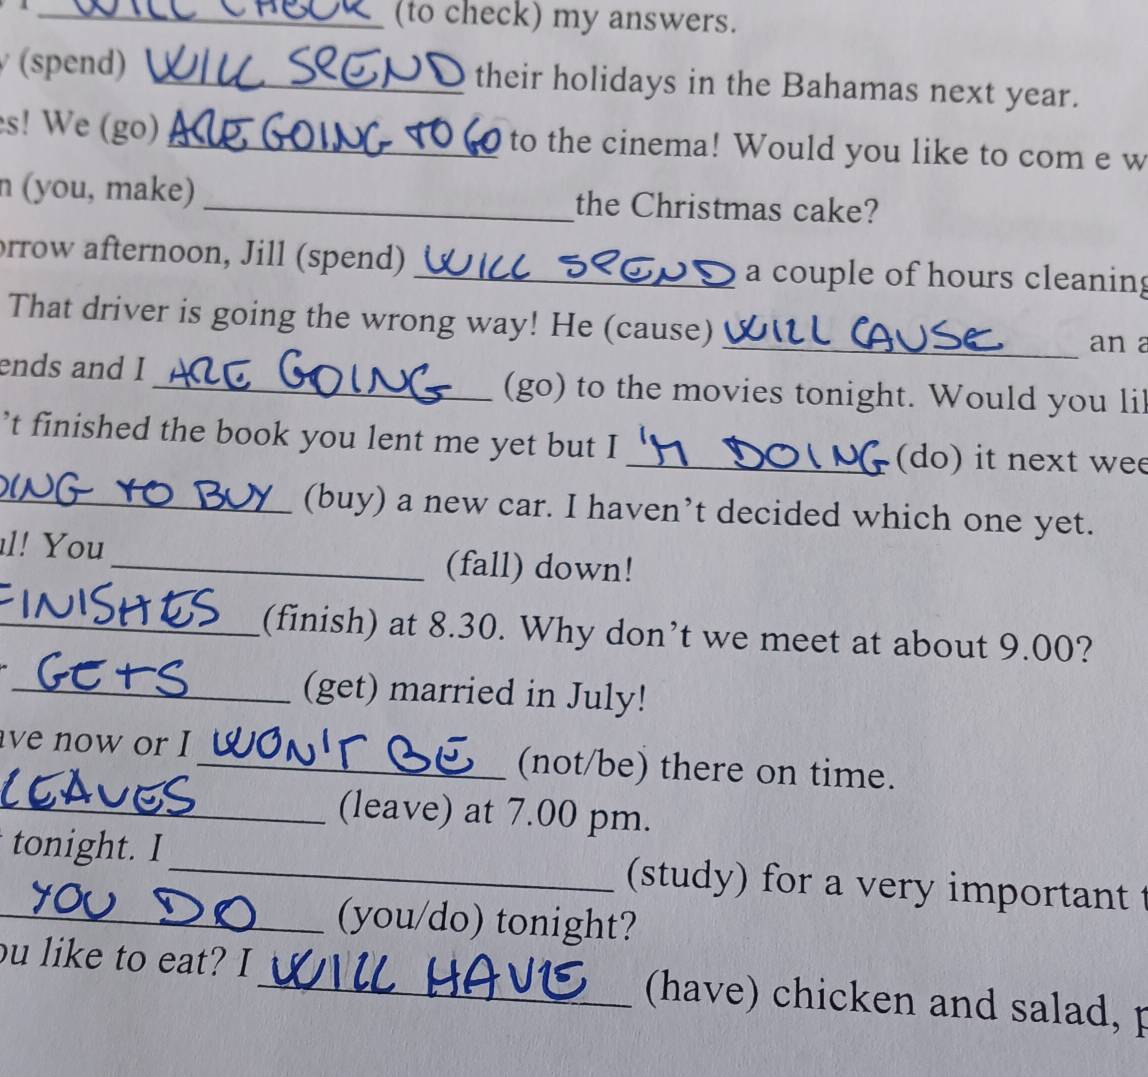 WILL CHECK (to check) my answers.
(spend) WILL SPEND their holidays in the Bahamas next year.
es! We (go) ARE GOING TO GO to the cinema! Would you like to com e w
n (you, make) ____ the Christmas cake?
orrow afternoon, Jill (spend) WILL SPEND a couple of hours cleaning
That driver is going the wrong way! He (cause) WILL CAUSE an a
ends and I ARE GOING (go) to the movies tonight. Would you lik
't finished the book you lent me yet but I 'M DOING (do) it next wee
OING TO BUY (buy) a new car. I haven't decided which one yet.
ul! You ____ (fall) down!
FINISHES (finish) at 8.30. Why don't we meet at about 9.00?
GETS (get) married in July!
ave now or I WON'T BE (not/be) there on time.
LEAVES (leave) at 7.00 pm.
tonight. I ____ (study) for a very important t
YOU DO (you/do) tonight?
ou like to eat? I WILL HAVE (have) chicken and salad, p